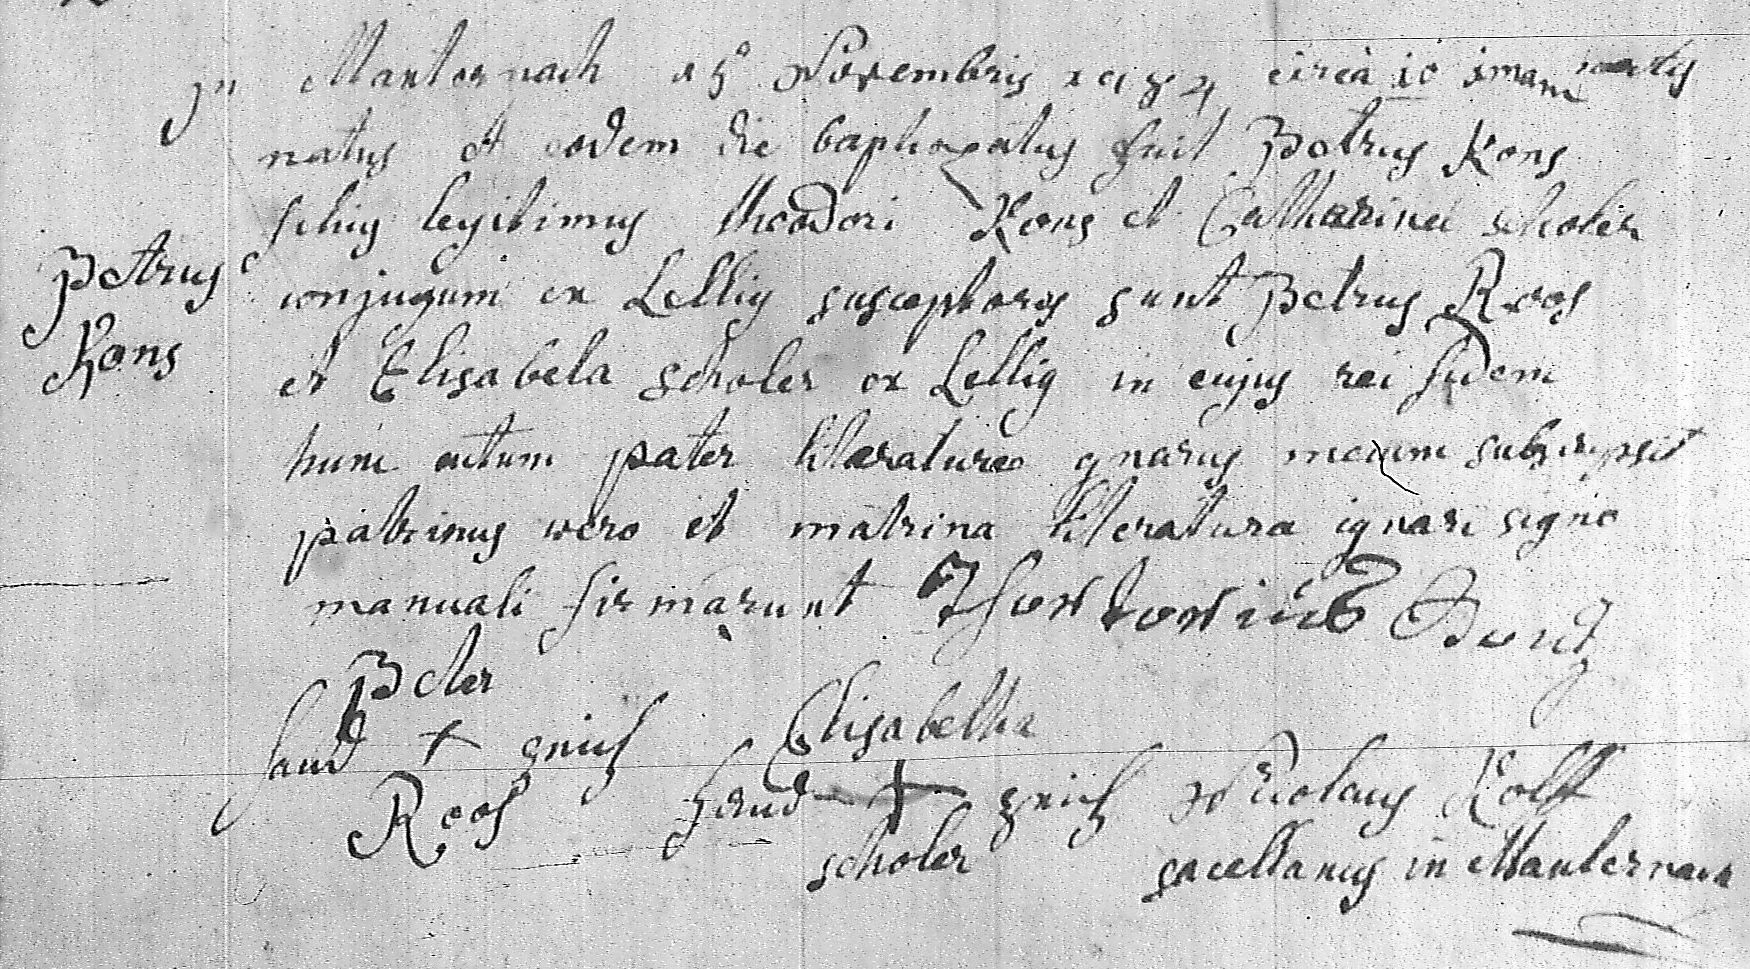 in Manternach 15 Novembris 1784 circa 10 imam
natus et eodem die baptizatus fuit Petrus Kons
filius legitimus theodori Kons et Catharinæ scholer
Petrus
conjugum ex Lellig susceptores sunt Petrus Roos
Kons
et Elisabeta scholer ex Lellig in cujus rei fidem
hunc actum pater literaturæ gnarus mecum subscripsit
patrinus vero et matrina literaturæ ignari signo
manuali firmarunt
Peter
hand + zeich Elisabetha
Roos hand + zeich Nicolaus Kolff
scholer sacellanus in Manternach